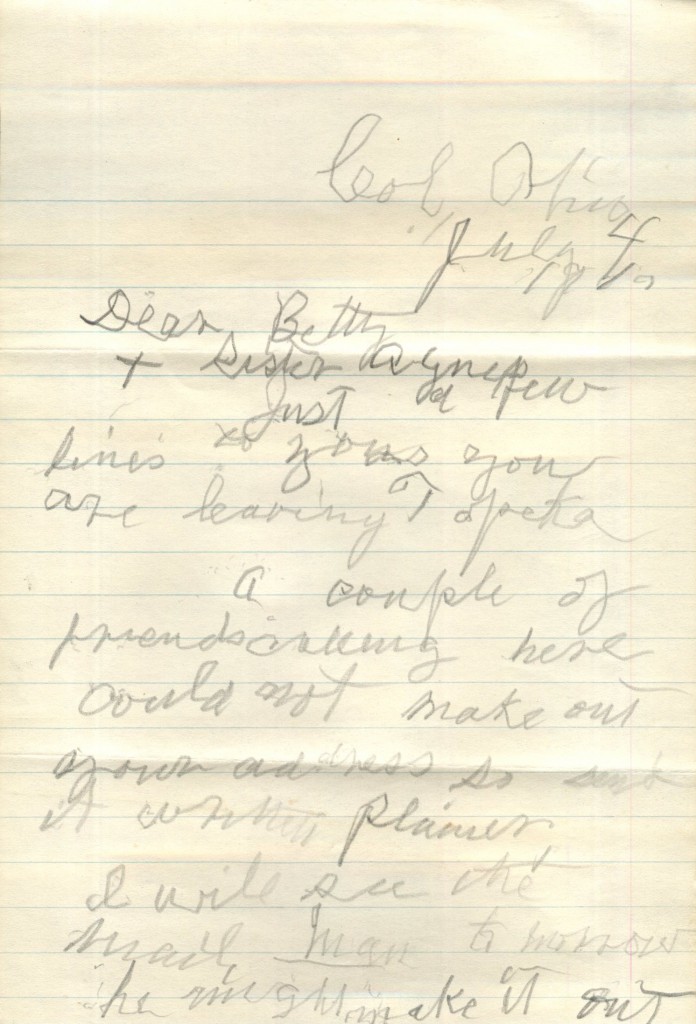 Col, Ohio
July 4
Dear Betty
+ Sister Agnes
Just a few
lines to you you
are leaving Topeka
A couple of
friends calling here
could not make out
your address so send
it written plainer
I will see the
mail man to morrow
he might make it out